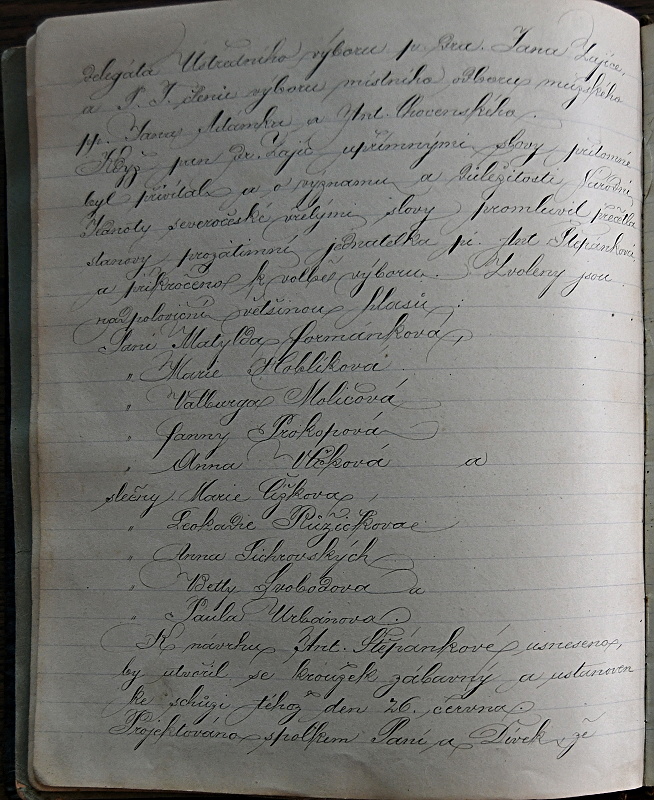 delegáta Ústředního výboru p. Dra. Jana Zajíce,
a P. T. členů výboru místního odboru mužského
pp. Jana Adamka a Ant. Chocenského.
Když pan Dr. Zajíc upřímnými slovy přítomné
byl přivítal a o významu a důležitosti Národní
Jednoty severočeské vřelými slovy promluvil přečtla
stanovy prozatimní jednatelka pí. Ant. Štěpánková,
a přikročeno k volbě výboru. Zvoleny jsou
nadpoloviční většinou hlasů:
Paní Matylda Formanková,
„ Marie Hoblíková
„ Valburga Moličová
„ Fanny Prokopová
„ Anna Vlčková a
slečny Marie Čížkova,
„ Leokadie Růžičkova
„ Anna Sichrovských
„ Betty Svobodova a
„ Paula Urbánova.
K návrhu Ant. Štěpánkové usneseno,
by utvořil se kroužek zábavný a ustanoven
ke schůzi téhož den 26. června.
Projektováno spolkem Paní a Dívek, že